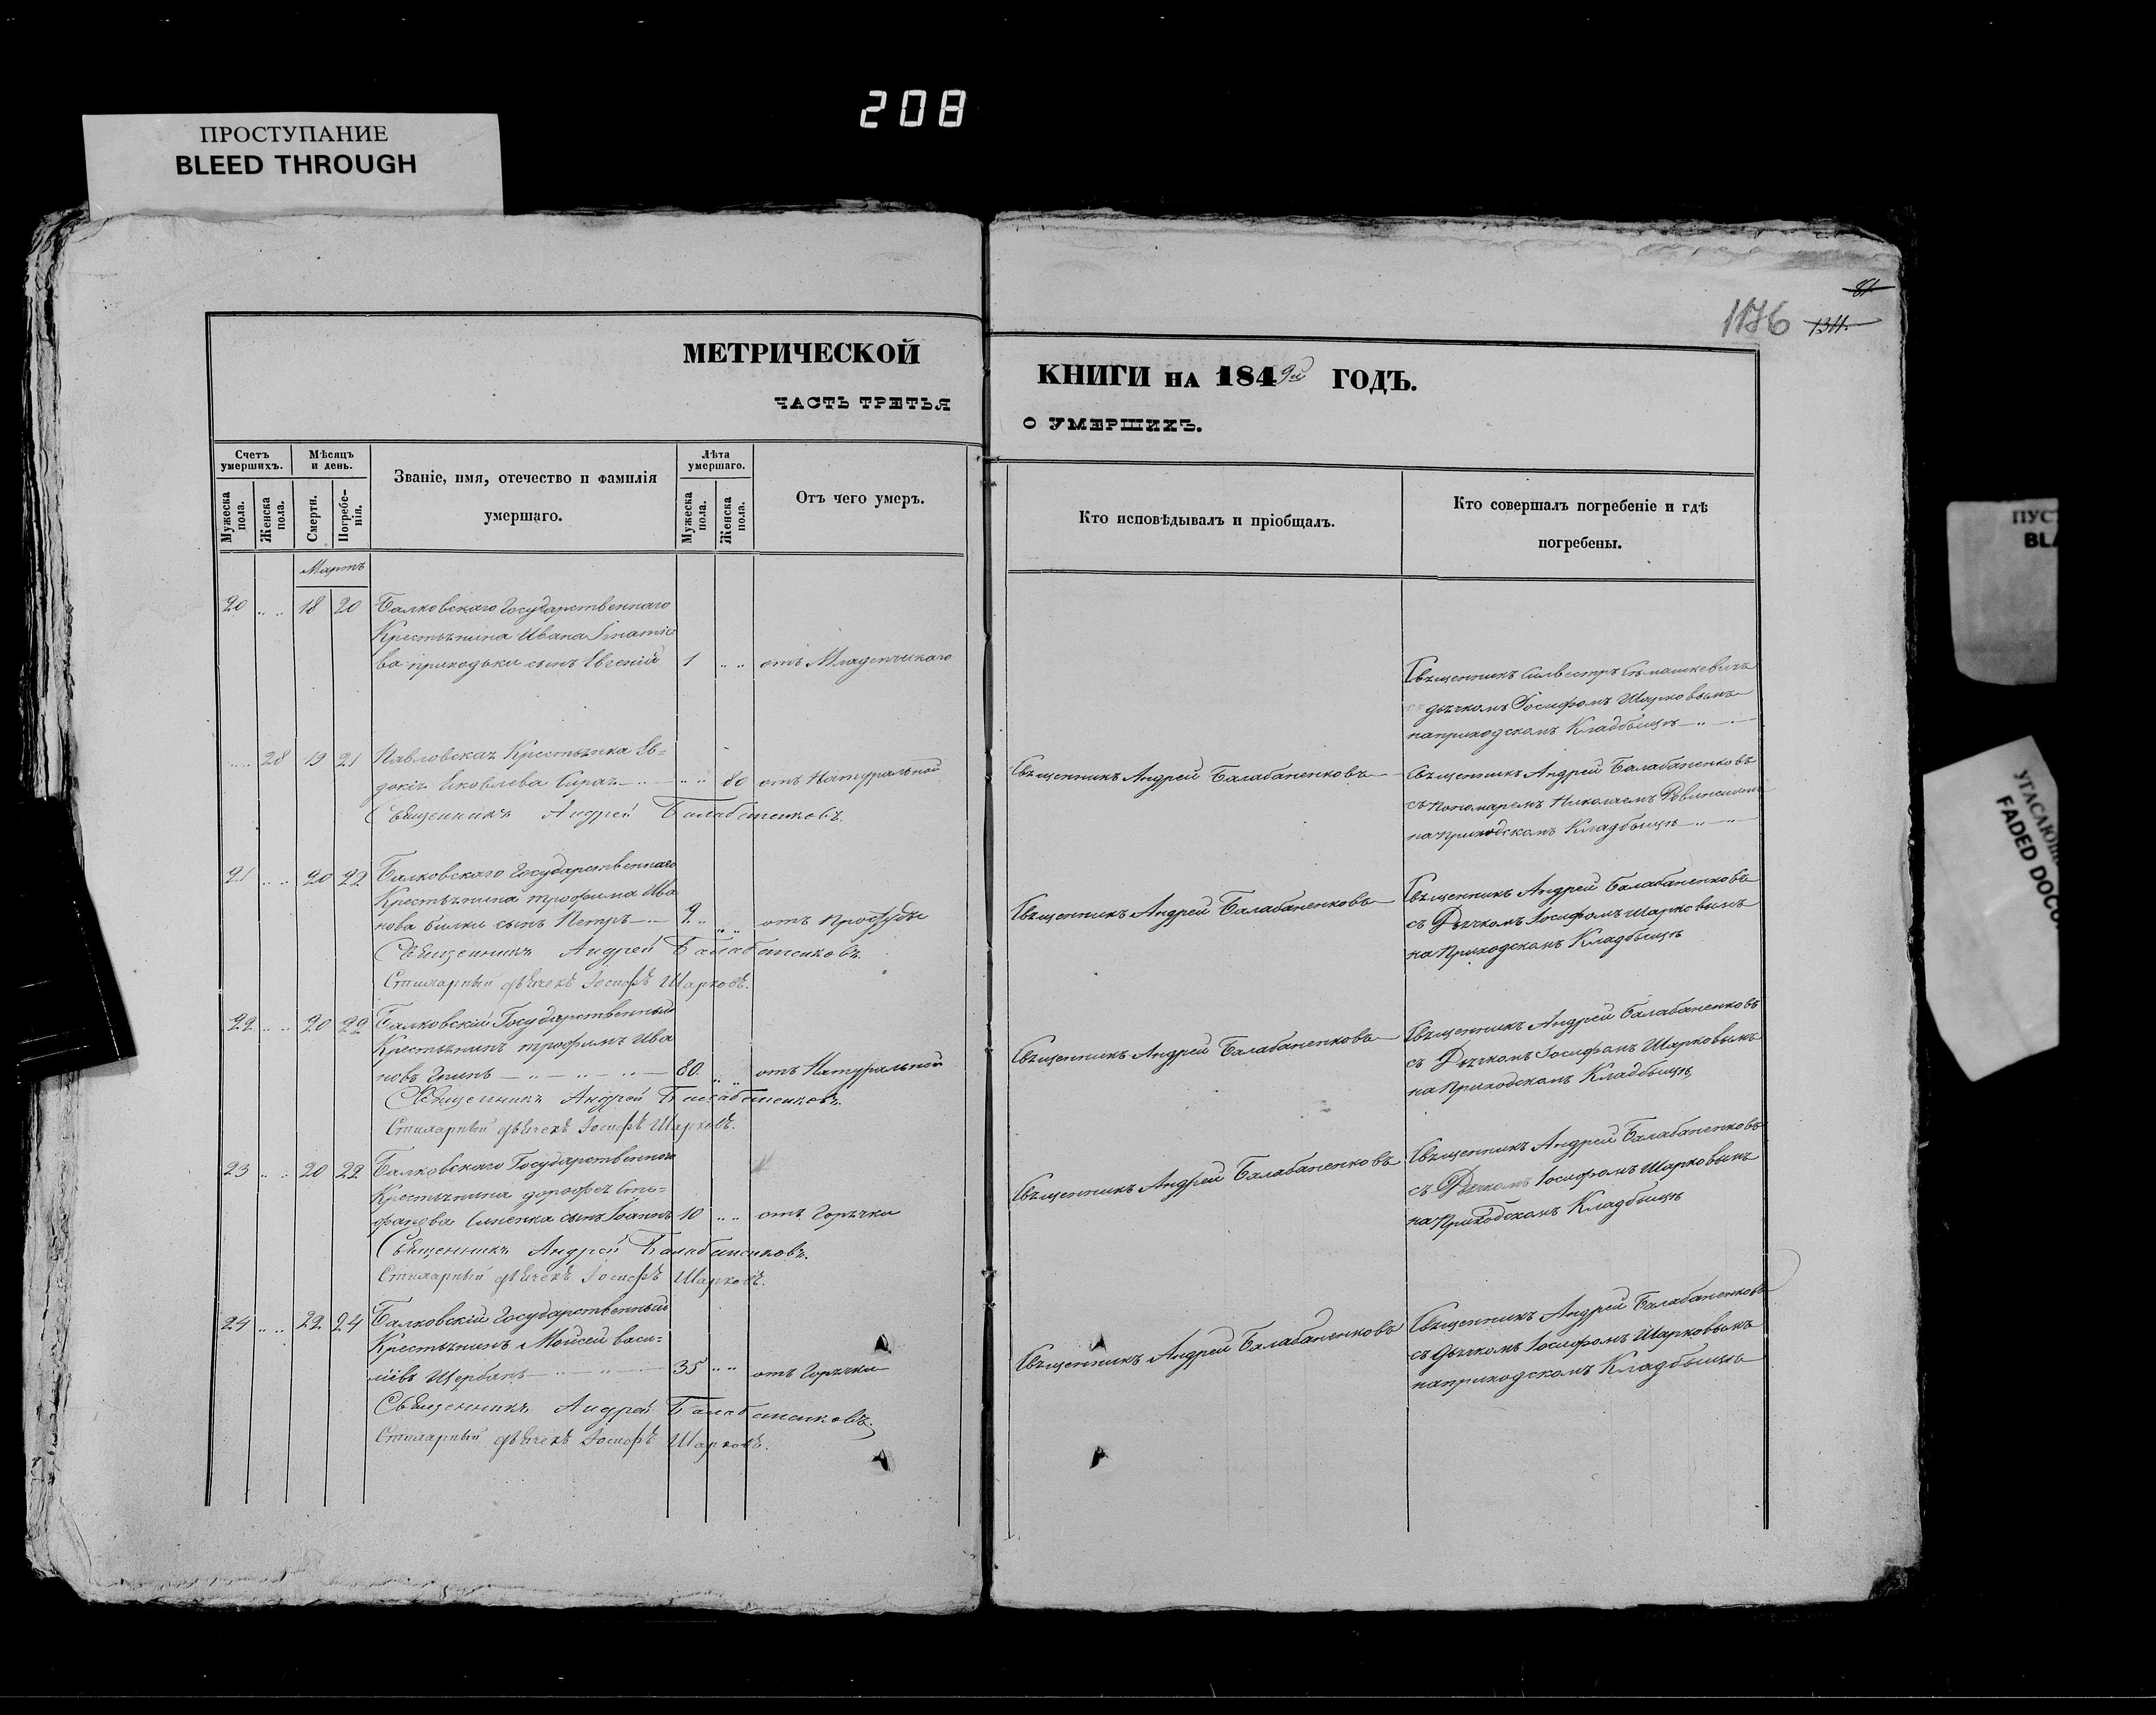 208
ПРОСТУПАНИЕ
BLEED THROUGH
1176
МЕТРИЧЕСКОЙ
ЧАСТЬ ТРЕТЬЯ
КНИГИ НА 1849й ГОДЪ.
О УМЕРШИХЪ.
Счетъ умершихъ.
Мѣсяцъ и день.
Званіе, имя, отечество и фамилія умершаго.
Лѣта умершаго.
Отъ чего умеръ.
Кто исповѣдывалъ и пріобщалъ.
Кто совершалъ погребеніе и гдѣ погребены.
Мужеска пола.
Женска пола.
Смерти.
Погребенія.
Мужеска пола.
Женска пола.
Мартъ
20 18 20 Балковскаго Государственнаго
Крестьянина Ивана
ва приходьки сынъ Евгеній 1 отъ Младенческаго
Священникъ Силвестръ
дьячкомъ Іосифомъ Шарковымъ
на приходскомъ Кладбищѣ
28 19 21 Павловская Крестьянка Ев=
докія Яковлева 80 отъ Натуральной
Священникъ Андрей Балабаненковъ.
Священникъ Андрей Балабаненковъ
Священникъ Андрей Балабаненковъ
съ Пономаремъ Николаемъ
на приходскомъ Кладбищѣ
21 20 22 Балковскаго Государственнаго
Крестьянина трофима Ива
нова билки сынъ Петръ 9 отъ простуды
Священникъ Андрей Балабаненковъ.
Стихарный дьячекъ Іосифъ Шарковъ.
Священникъ Андрей Балабаненковъ
Священникъ Андрей Балабаненковъ
съ Дьячкомъ Іосифомъ Шарковымъ
на Приходскомъ Кладбищѣ
22 20 22 Балковскій Государственный
Крестьянинъ трофимъ Ива
новъ 80 отъ Натуральной
Священникъ Андрей Балабаненковъ.
Стихарный дьячекъ Іосифъ Шарковъ.
Священникъ Андрей Балабаненковъ
Священникъ Андрей Балабаненковъ
съ Дьячкомъ Іосифомъ Шарковымъ
на Приходскомъ Кладбищѣ
23 20 22 Балковскаго Государственнаго
Крестьянина дорофея Сте=
фанова сынъ Іоаннъ 10 отъ Горячки
Священникъ Андрей Балабаненковъ.
Стихарный дьячекъ Іосифъ Шарковъ.
Священникъ Андрей Балабаненковъ
Священникъ Андрей Балабаненковъ
съ Дьячкомъ Іосифомъ Шарковымъ
на Приходскомъ Кладбищѣ
24 22 24 Балковскій Государственный
Крестьянинъ Мойсей васи=
ліевъ Щербанъ 35 отъ Горячки
Священникъ Андрей Балабаненковъ.
Стихарный дьячекъ Іосифъ Шарковъ.
Священникъ Андрей Балабаненковъ
Священникъ Андрей Балабаненковъ
съ дьячкомъ Іосифомъ Шарковымъ
на приходскомъ Кладбищѣ
ПУС
BLA
УГАСАЮЩ
FADED DOCU